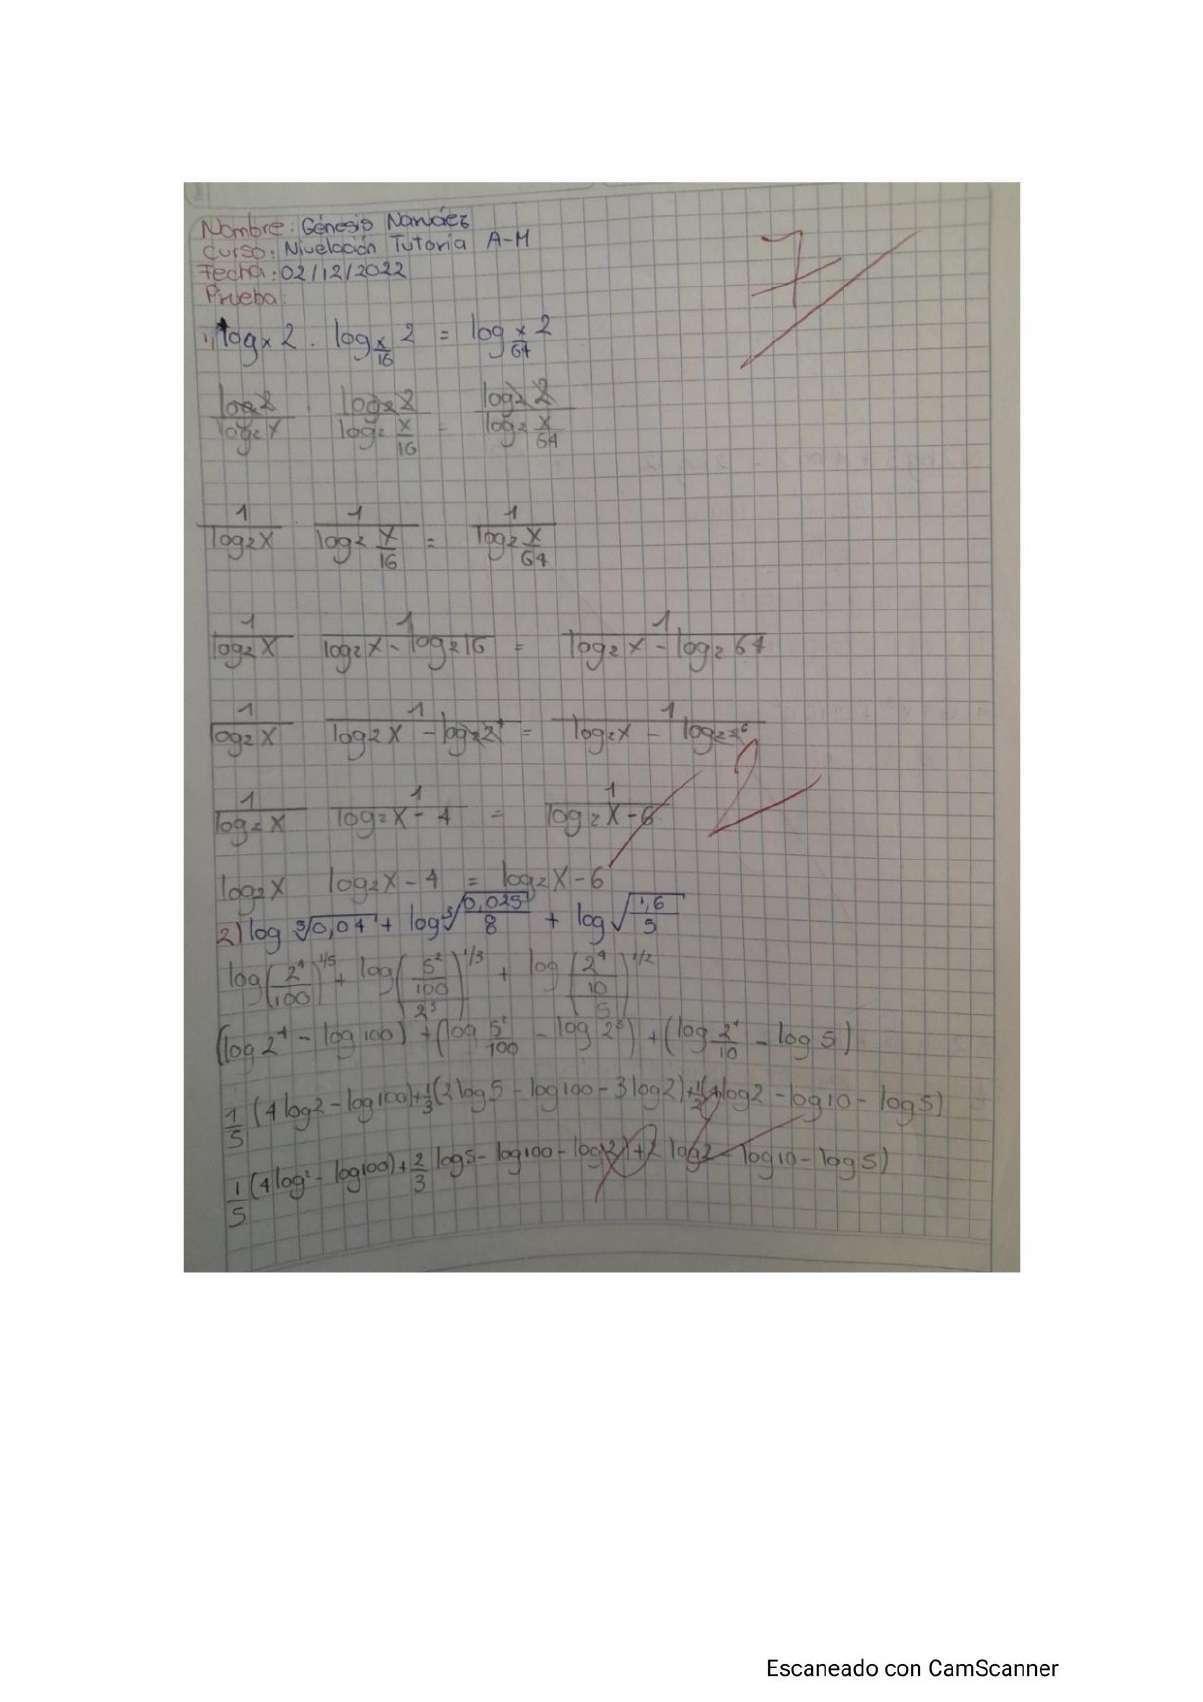 Nombre: Génesis Narváez
Curso: Nivelación Tutoria A-M
Fecha: 02/12/2022
Prueba:
7
1) log_x 2 . log_{x/16} 2 = log_{x/64} 2
log₂2/log₂x . log₂2/log₂ x/16 = log₂2/log₂ x/64
1/log₂x . 1/log₂ x/16 = 1/log₂ x/64
1/log₂x 1/log₂x - log₂16 = 1/log₂x - log₂64
1/log₂x 1/log₂x - log₂2⁴ = 1/log₂x - log₂2⁶
1/log₂x 1/log₂x - 4 = 1/log₂x - 6
log₂x log₂x - 4 = log₂x - 6
2) log ⁵√0,04 + log ³√(0,025/8) + log √(1,6/5)
log(2⁴/100)^1/5 + log(5²/100/2³)^1/3 + log(2⁴/10/5)^1/2
(log 2⁴ - log 100) + (log 5²/100 - log 2³) + (log 2⁴/10 - log 5)
1/5 (4log2 - log100) + 1/3 (2log5 - log100 - 3log2) + 1/2 (4log2 - log10 - log5)
1/5 (4log² - log100) + 2/3 log5 - log100 - log2) + 2 log2 - log10 - log5)
Escaneado con CamScanner